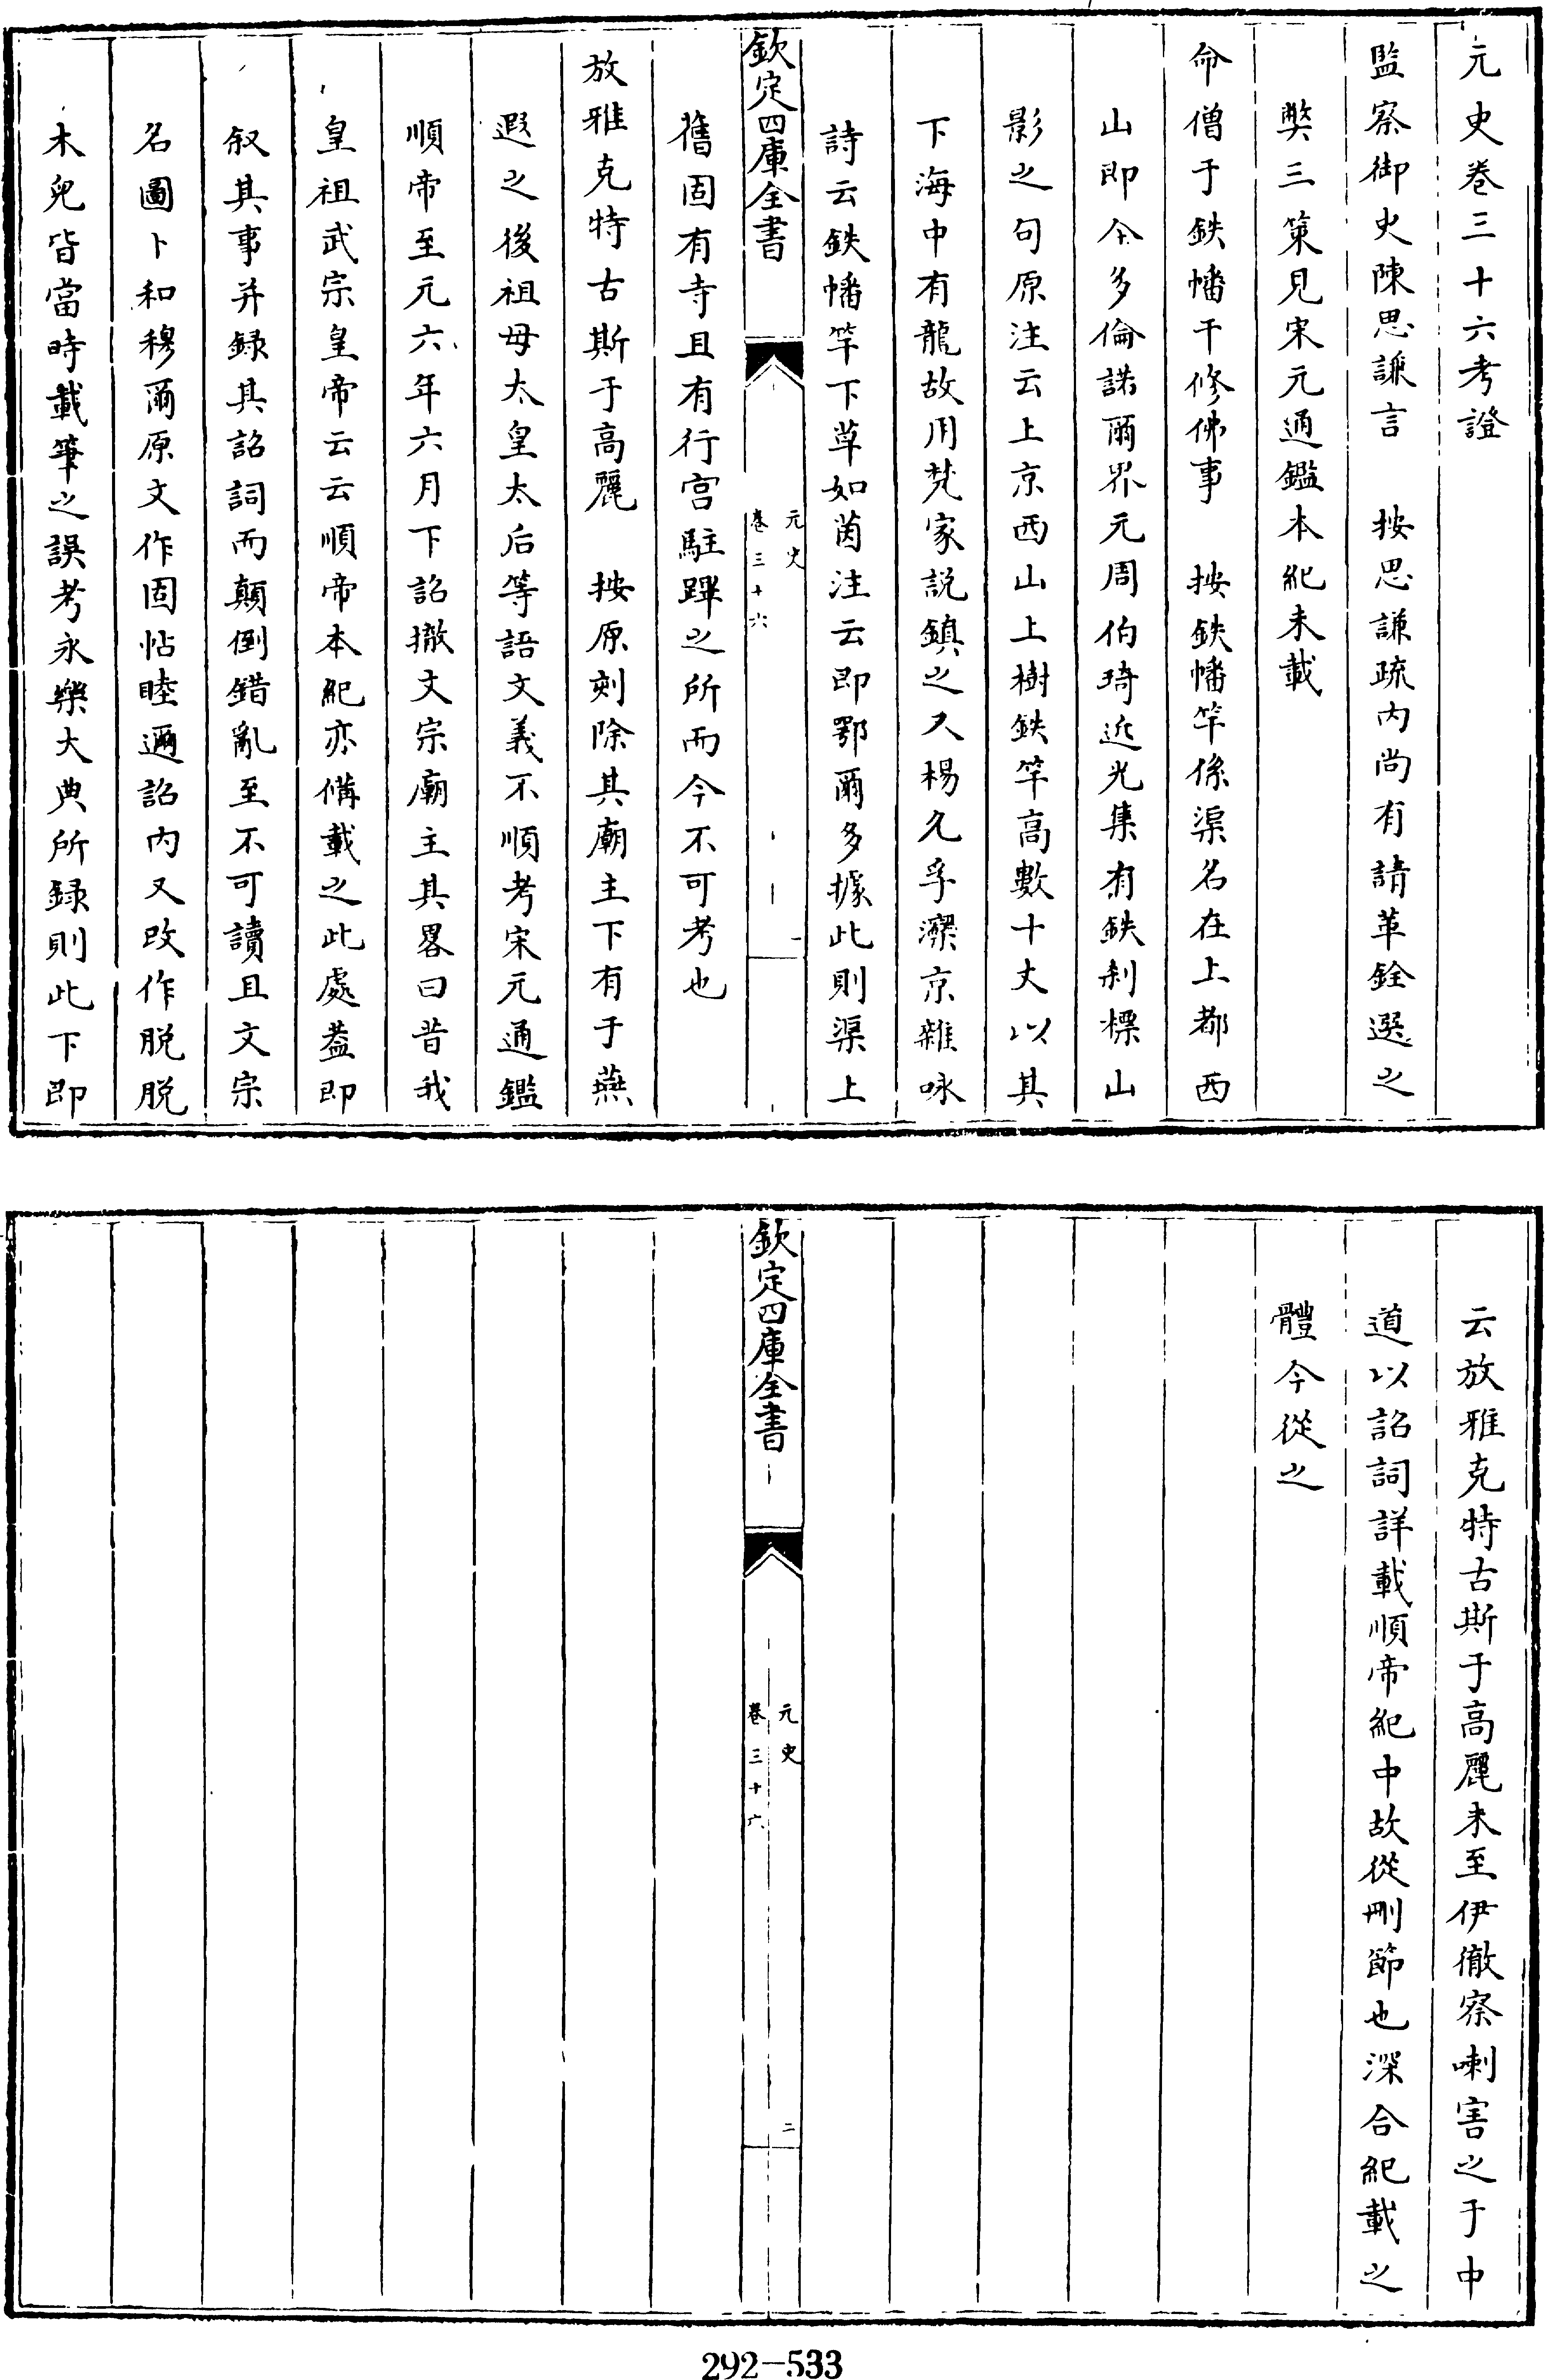 元史卷三十六考證
監察御史陳思謙言　按思謙疏内尚有請革銓選之
弊三策見宋元通鑑本紀未載
命僧于鉄幡干修佛事　按鉄幡竿係渠名在上都西
山即今多倫諾爾界元周伯琦近光集有鉄刹標山
影之句原注云上京西山上樹鉄竿高數十丈以其
下海中有龍故用梵家説鎮之又楊允孚灤京雜咏
詩云鉄幡竿下草如茵注云即鄂爾多據此則渠上
欽定四庫全書
元史
卷三十六
一
舊固有寺且有行宫駐蹕之所而今不可考也
放雅克特古斯于高麗　按原刻除其廟主下有于燕
遐之後祖母太皇太后等語文義不順考宋元通鑑
順帝至元六年六月下詔撤文宗廟主其畧曰昔我
皇祖武宗皇帝云云順帝本紀亦備載之此處葢即
叙其事并録其詔詞而顛倒錯亂至不可讀且文宗
名圖卜和穆爾原文作固帖睦邇詔内又改作脱脱
木兒皆當時載筆之誤考永樂大典所録則此下即
云放雅克特古斯于高麗未至伊徹察喇害之于中
道以詔詞詳載順帝紀中故從刪節也深合紀載之
體今從之
欽定四庫全書
元史
卷三十六
二
292-533